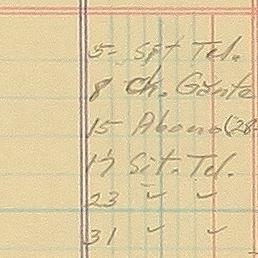 5- Sit Tel.
8 Ch. Gante
15 Abono (28-
17 Sit. Tel.
23 " "
31 " "